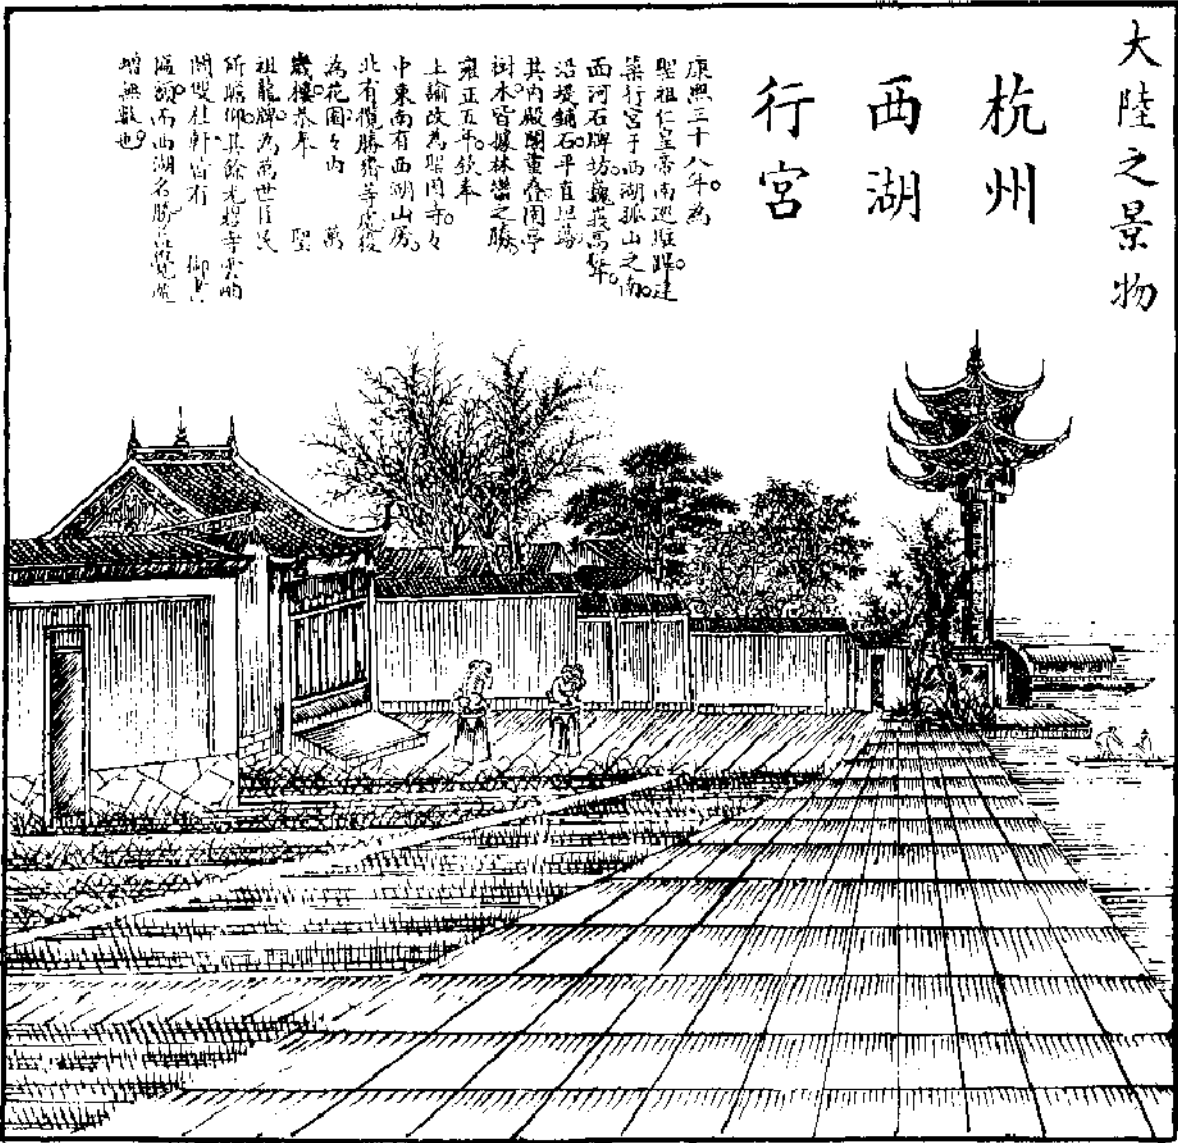 大陸之景物
杭州
西湖
行宮
康熙三十八年。為
聖祖仁皇帝南巡駐蹕。建
築行宮于西湖孤山之南。
西河石牌坊。巍峩高聳。
沿堤鋪石。平直坦蕩。
其內殿閣重疊。園亭
樹木。皆擴林巒之勝。
雍正五年。欽奉
上諭改為聖因寺。々
中東南有西湖山房。
北有攬勝齋等處。後
為花園。々內 萬
歲樓。恭奉 聖
祖龍牌。為萬世臣民
所瞻仰。其餘光碧寺雲
閣雙杜軒皆有 御書
匾額。而西湖名勝
增無數也。